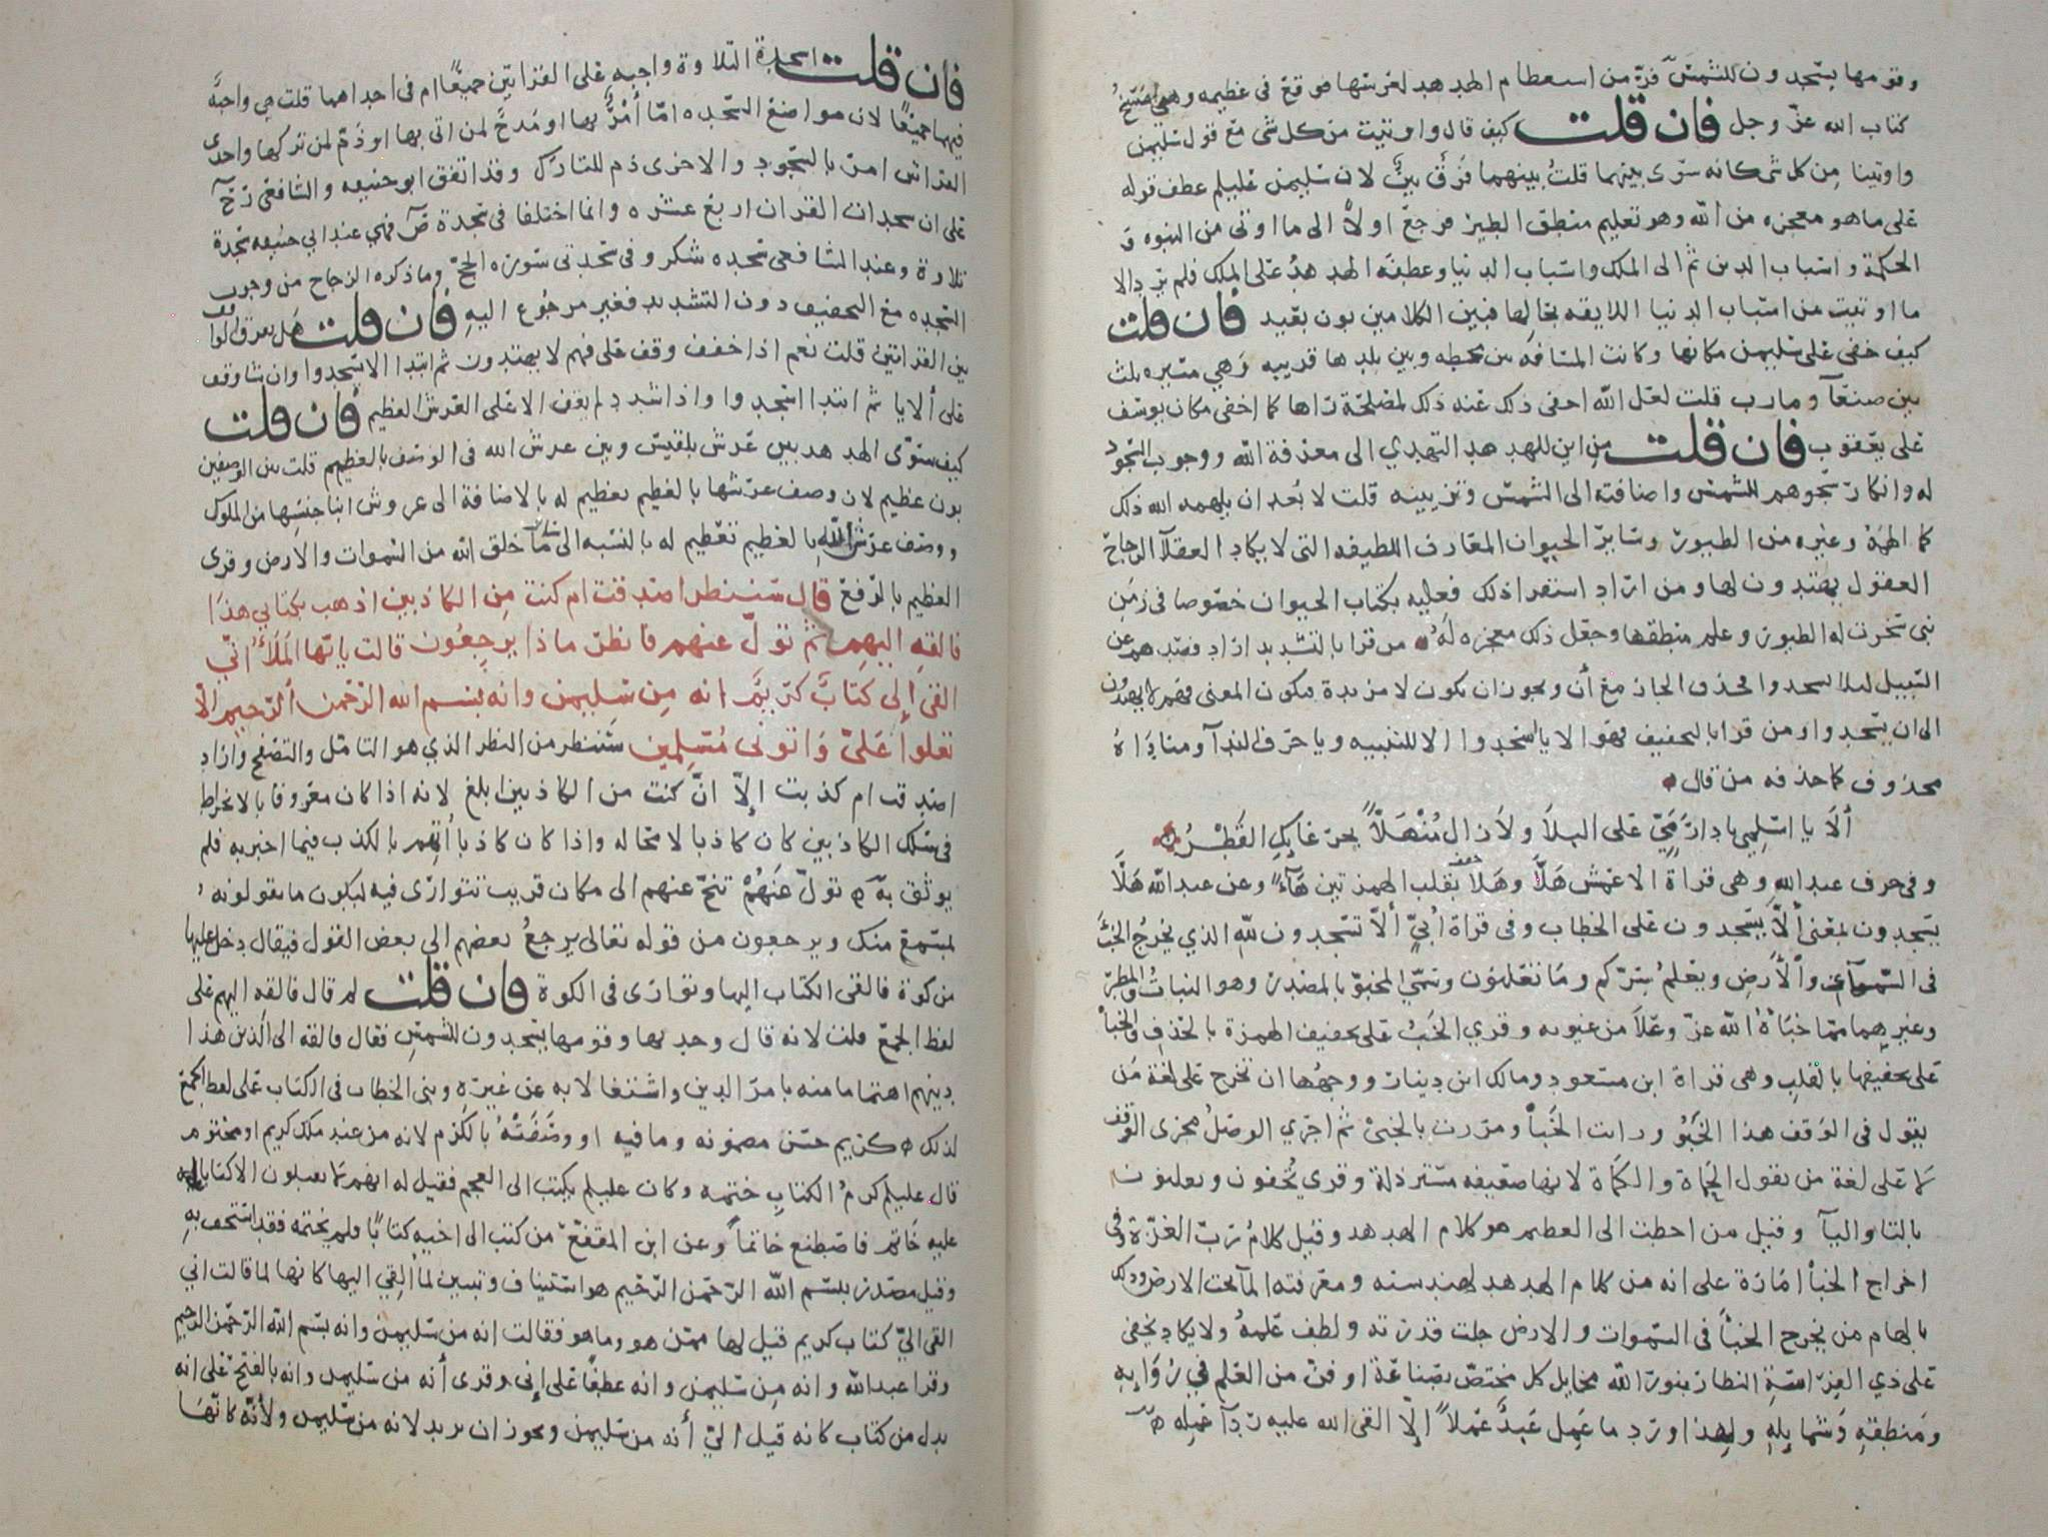 وقومها يسجدون للشمس فرّ من استعظام الهدهد لعرشها فوقع في عظيمه وهي مسخ
كتاب الله عزّ وجل فان قلت كيف قال واوتيت من كل شى مع قول سليمن
واوتينا من كل شى كانه سوّى بينهما قلت بينهما فرق بيّن لان سليمن عليلم عطف قوله
على ما هو معجزه من الله وهو تعليم منطق الطير فرجع اولاً الى ما اوتى من النبوه و
الحكمة واسباب الدين ثم الى الملك واسباب الدنيا وعطفه الهدهد على الملك فلم يرد الا
ما اوتيت من اسباب الدنيا اللايقه بحالها فبين الكلامين بون بعيد فان قلت
كيف خفى على سليمن مكانها وكانت المسافة بين محطه وبين بلدها قريبه وهي مسيره ثلث
بين صنعآ ومارب قلت لعل الله اخفى ذلك عنه ذلك لمصلحة راها كما اخفى مكان يوسف
على يعقوب فان قلت من اين للهدهد التهدي الى معرفة الله ووجوب السجود
له وانكار سجودهم للشمس واضافته الى الشمس وتزيينه قلت لا بعد ان يلهمه الله ذلك
كما الهمه وغيره من الطيور وساير الحيوان المعارف اللطيفه التى لا يكاد العقلآ الرجاح
العقول يهتدون لها ومن اراد استقرا ذلك فعليه بكتاب الحيوان خصوصا في زمن
نبى سخرت له الطيور وعلم منطقها وجعل ذلك معجزه له من قرا بالتشديد اراد فصدهم عن
السبيل ليلا يسجدوا فحذف الجار مع أن ويجوز ان يكون لا مزيدة ويكون المعنى فهم لا يهتدون
الى ان يسجدوا ومن قرا بالتخفيف فهو الا يا اسجدوا الا للتنبيه ويا حرف الندآ ومناداه
محذوف كما حذفه من قال
ألا يا اسلمي يا دار ميّ على البلا ولا زال منهلاً بجرعائك القطر
وفي حرف عبد الله وهى قراة الاعمش هلّا وهلا بقلب الهمزتين هآءً وعن عبد الله هلّا
يسجدون بمعنى ألّا يسجدون على الخطاب وفى قراة أبيّ ألّا تسجدون لله الذي يخرج الخبَ
فى السموات والأرض ويعلم سرّكم وما تعلنون وسمّي المخبوّ بالمصدر وهو النبات والمطر
وغيرهما مما خبأهُ الله عزّ وعلا من غيوبه وقري الخبُ على تخفيف الهمزة بالحذف والخبا
على تخفيفها بالقلب وهى قراة ابن مسعود ومالك ابن دينار ووجهها ان تخرج على لغة من
يقول فى الوقف هذا الخبُو ورات الخبأ ومررت بالخبى ثم اجري الوصل مجرى الوقف
لا على لغة من يقول الحماة والكماة لانها ضعيفه مسترذلة وقري تُخفون وتعلنون
بالتا واليآ وقيل من احطت الى العظيم هو كلام الهدهد وقيل كلام ربّ العزة وفي
اخراج الخبأ امارة على انه من كلام الهدهد لهندسته ومعرفته المآ تحت الارض وذلك
بالهام من يخرج الخبأ فى السموات والارض جلت قدرته ولطف علمهُ ولا يكاد يخفى
على ذي الفراسة النظار بنور الله مخايل كل مختصّ بصناعة او فنّ من العلم فى رُوايه
ومنطقه وشمايله ولهذا ورد ما عمل عبدٌ عملاً إلّا القى الله عليه ردآ عمله
فان قلت اسجدة التلاوة واجبه على القراتين جميعاً ام فى احداهما قلت هى واجبه
فيهما جميعاً لان مواضع السجده امّا أمرٌ بها او مدح لمن اتى بها او ذمّ لمن تركها واحدى
القراتين امر بالسجود والاخرى ذم للتارك وقد اتفق ابو حنيفه والشافعى رح
على ان سجدات القران اربع عشره وانما اختلفا فى سجدة صٓ فهي عند ابى حنيفه سجدة
تلاوة وعند الشافعى سجده شكر وفى سجدتى سورة الحجّ وما ذكره الزجاج من وجوب
السجده مع التخفيف دون التشديد فغير مرجوع اليه فان قلت هل يفرق الواقف
بين القراتين قلت نعم اذا خفف وقف على فهم لا يهتدون ثم ابتدا الا يسجدوا وان شا وقف
على ألا يا ثم ابتدا اسجدوا واذا شدد لم يقف الا على العرش العظيم فان قلت
كيف سوّى الهدهد بين عرش بلقيس وبين عرش الله فى الوصف بالعظيم قلت بين الوصفين
بون عظيم لان وصف عرشها بالعظيم تعظيم له بالاضافة الى عروش ابنا جنسها من الملوك
ووصف عرش الله بالعظيم تعظيم له بالنسبه الى ساير ما خلق الله من السموات والارض وقرى
العظيم بالرّفع قال سننظر اصدقت ام كنت من الكاذبين اذهب بكتابي هذا
فالقه اليهم ثم تولّ عنهم فانظر ماذا يرجعون قالت يا يّها الملأُ انّي
القى إلى كتابٌ كريمٌ انه من سليمن وانه بسم الله الرّحمن الرّحيم الّا
تعلوا عليّ واتونى مسلمين سننظر من النظر الذي هو التامّل والتصفح واراد
اصدقت ام كذبت إلّا انّ كنت من الكاذبين ابلغ لانه اذا كان معروفا بالانخراط
فى سلك الكاذبين كان كاذبا لا محاله واذا كان كاذبا اتهم بالكذب فيما اخبر به فلم
يوثق به تولّ عنهُمْ تنحّ عنهم الى مكان قريب تتوارى فيه ليكون ما يقولونه
لمسمع منك ويرجعون من قوله تعالى يرجعُ بعضهم الى بعض القول فيقال دخل عليها
من كوة فالقى الكتاب اليها وتوارى فى الكوة فان قلت لم قال فالقه اليهم على
لفظ الجمع قلت لانه قال وجدتها وقومها يسجدون للشمس فقال فالقه الى الذين هذا
دينهم اهتماما منه بامر الدين واشتغالا به عن غيره وبنى الخطاب فى الكتاب على لفظ الجمع
لذلك كريم حسن مضمونه وما فيه او وصفتهُ بالكرم لانه من عند ملك كريم او مختوم
قال عليلم كرمُ الكتاب ختمه وكان عليلم يكتب الى العجم فقيل له انهم لا يقبلون الا كتابا
عليه خاتم فاصطنع خاتماً وعن ابن المقفع من كتب الى اخيه كتاباً ولم يختمه فقد استخف به
وقيل مصدّر ببسم الله الرّحمن الرّحيم هو استيناف وتبيين لما ألقي اليها كانها لما قالت انى
القى اليّ كتاب كريم قيل لها ممّن هو وما هو فقالت انه من سليمن وانه بسم الله الرّحمن الرحيم
وقرا عبد الله وانه من سليمن وانه عطفاً على إنى وقرى أنه من سليمن وانه بالفتح على انه
بدل من كتاب كانه قيل اليّ أنه من سليمن ويجوز ان يريد لانه من سليمن ولأنّه كانها